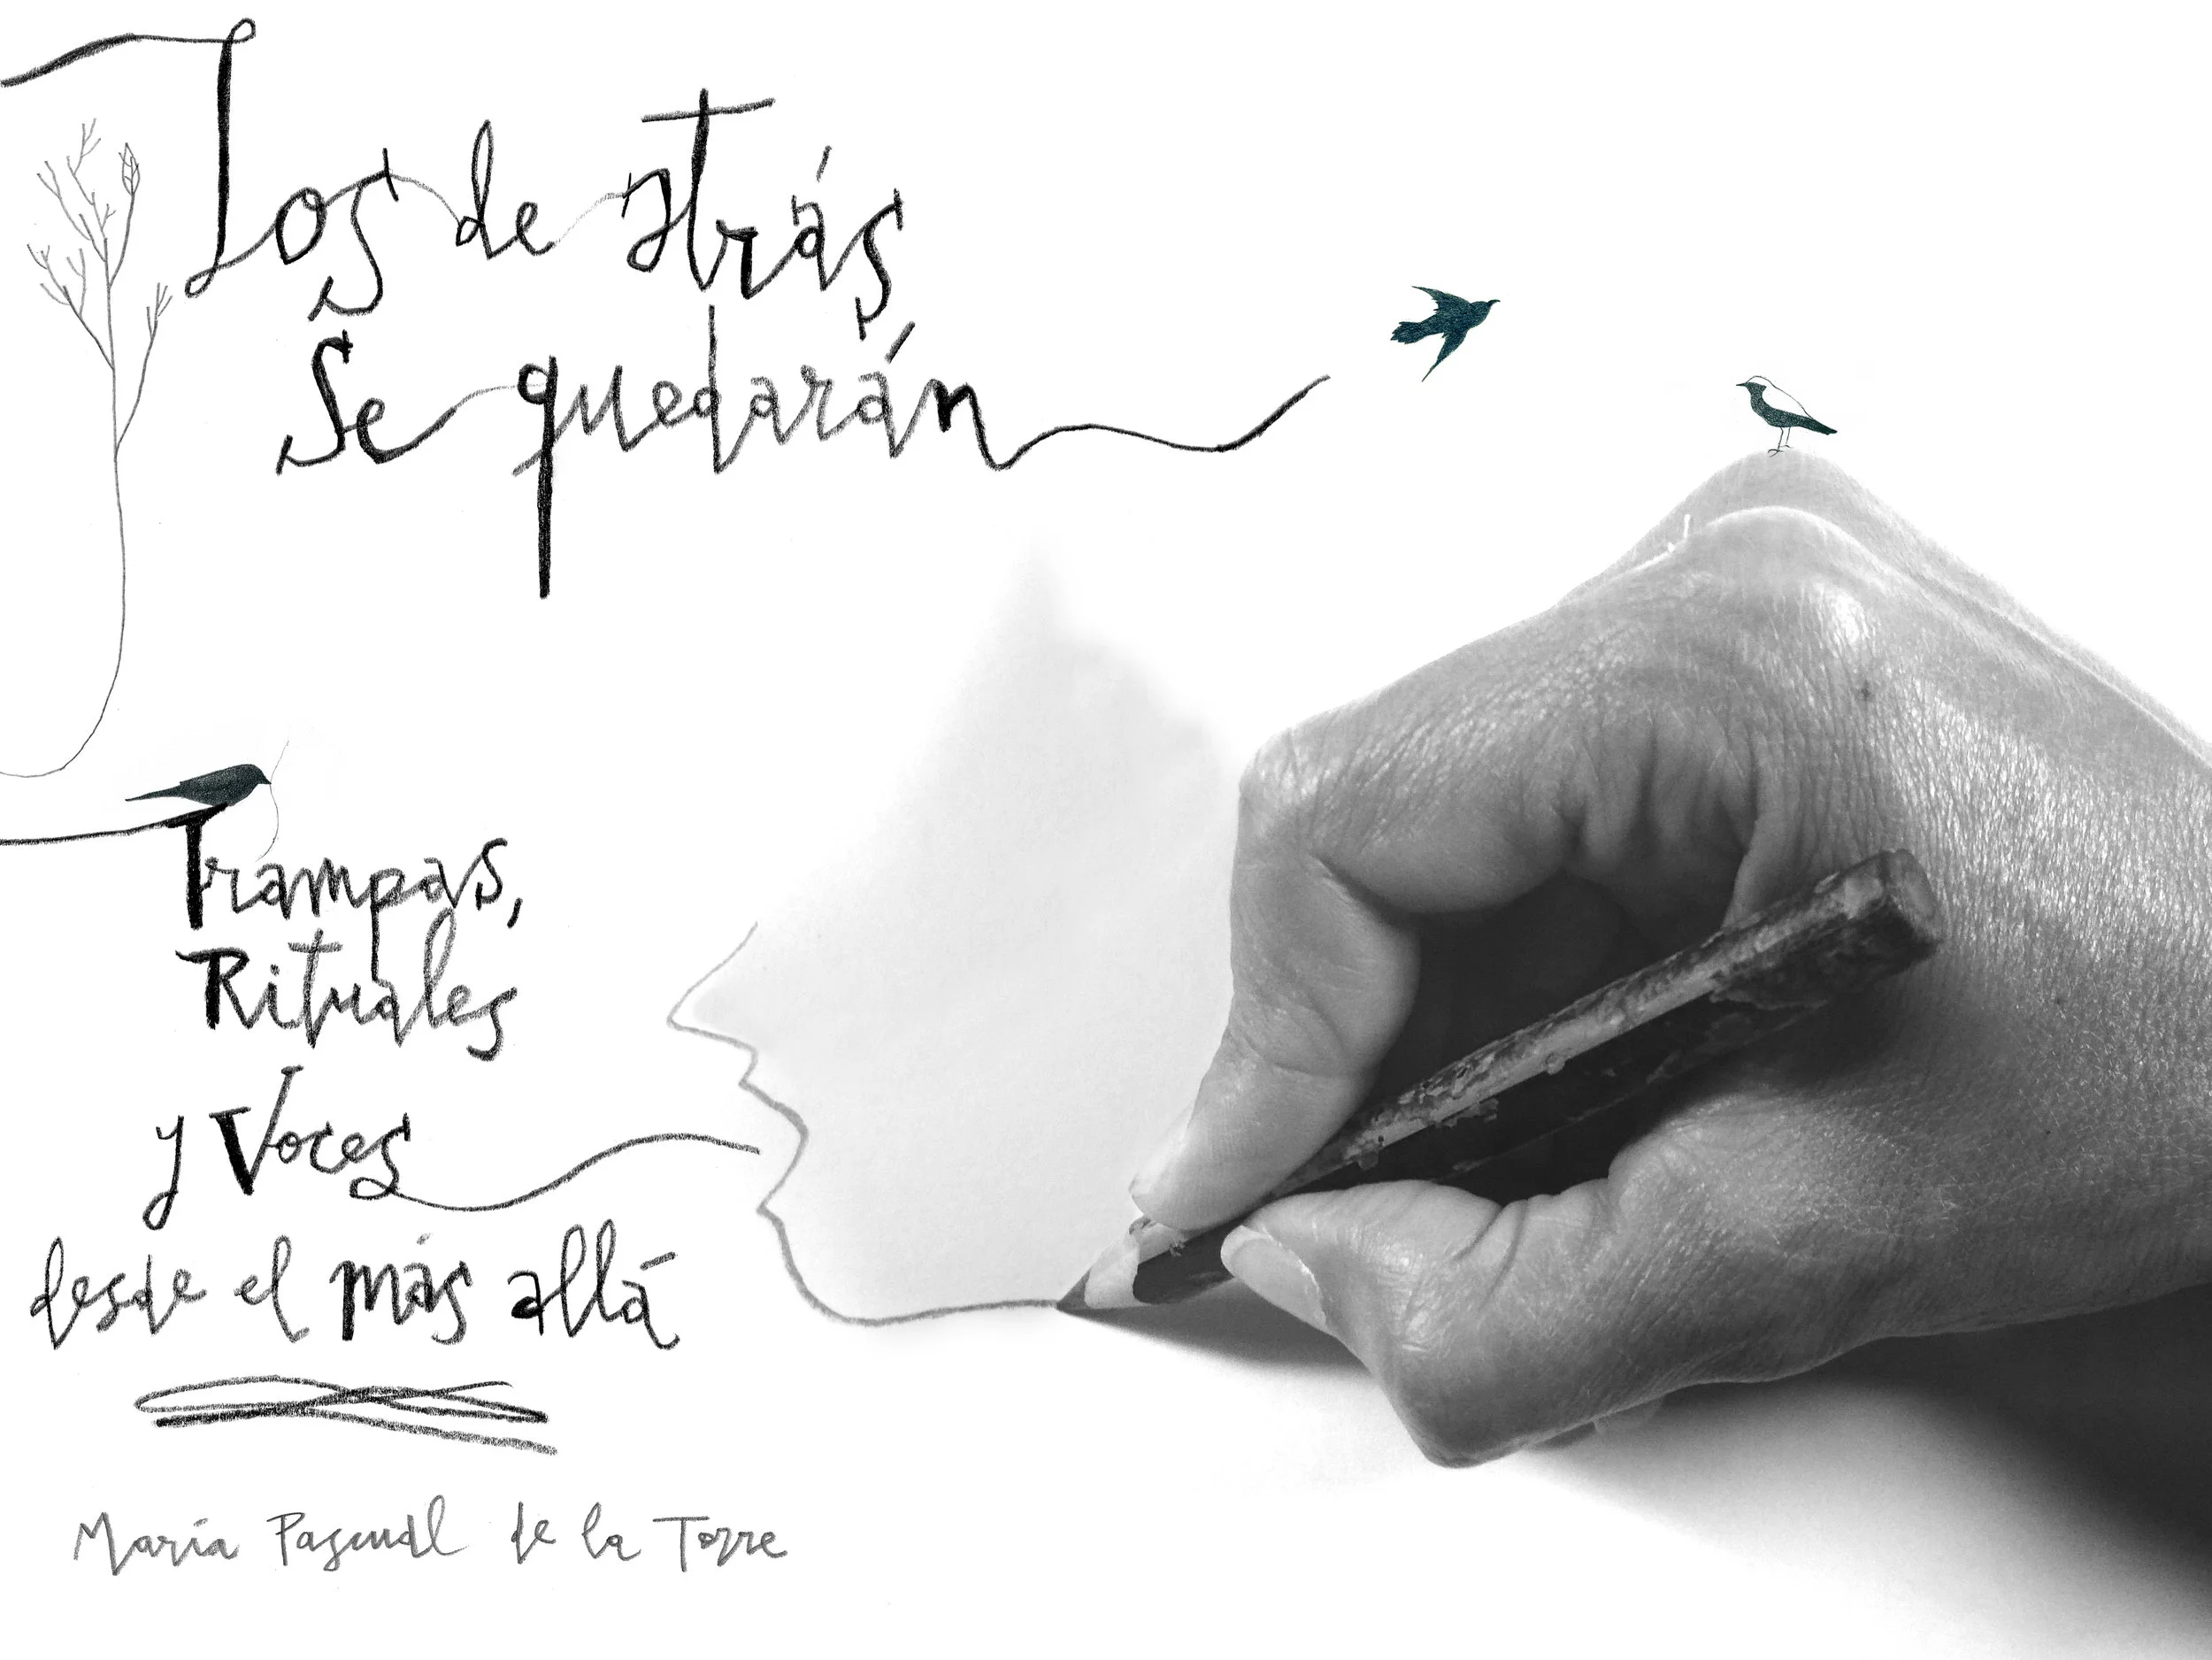 Los de atrás
Se quedarán
Trampas,
Rituales
y Voces
desde el más allá
María Pascual de la Torre